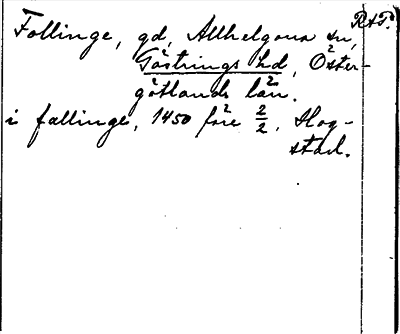 Follinge, gd, Allhelgona sn, RAP.
Göstrings hd, Öster-
götlands län.
i fallinge, 1450 före 2/2, Hog-
stad.